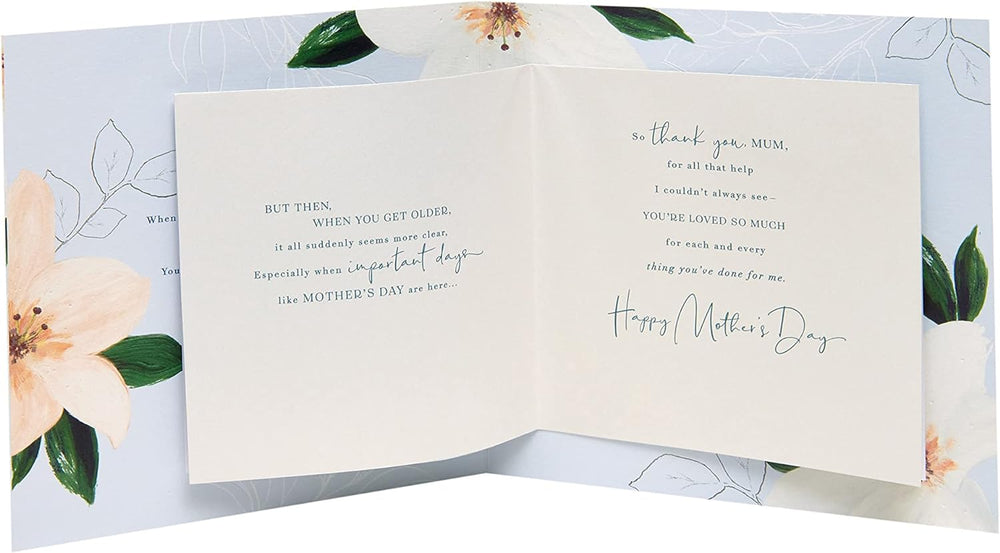 When
You
BUT THEN,
WHEN YOU GET OLDER,
it all suddenly seems more clear,
Especially when important days
like MOTHER'S DAY are here...
So thank you, MUM,
for all that help
I couldn't always see–
YOU'RE LOVED SO MUCH
for each and every
thing you've done for me.
Happy Mother's Day